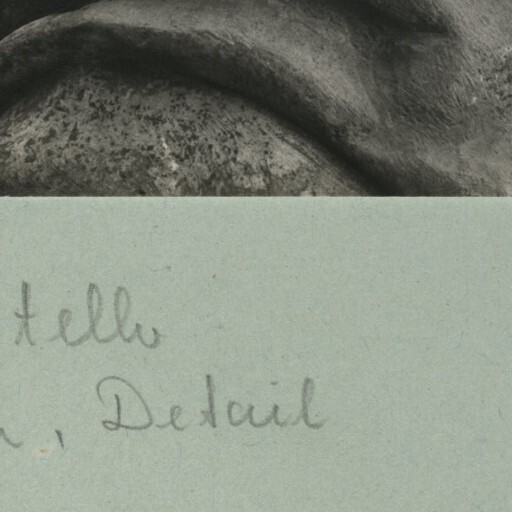 tello
, Detail